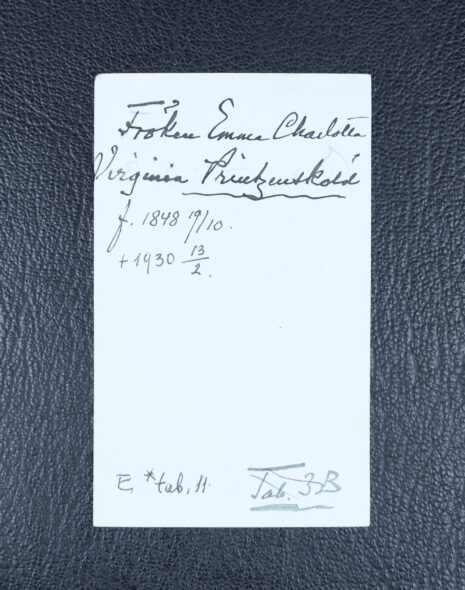 Fröken Emma Charlotta
Virginia Printzensköld
f. 1848 19/10.
+ 1930 13/2.
E *tab. 11
Tab. 3B